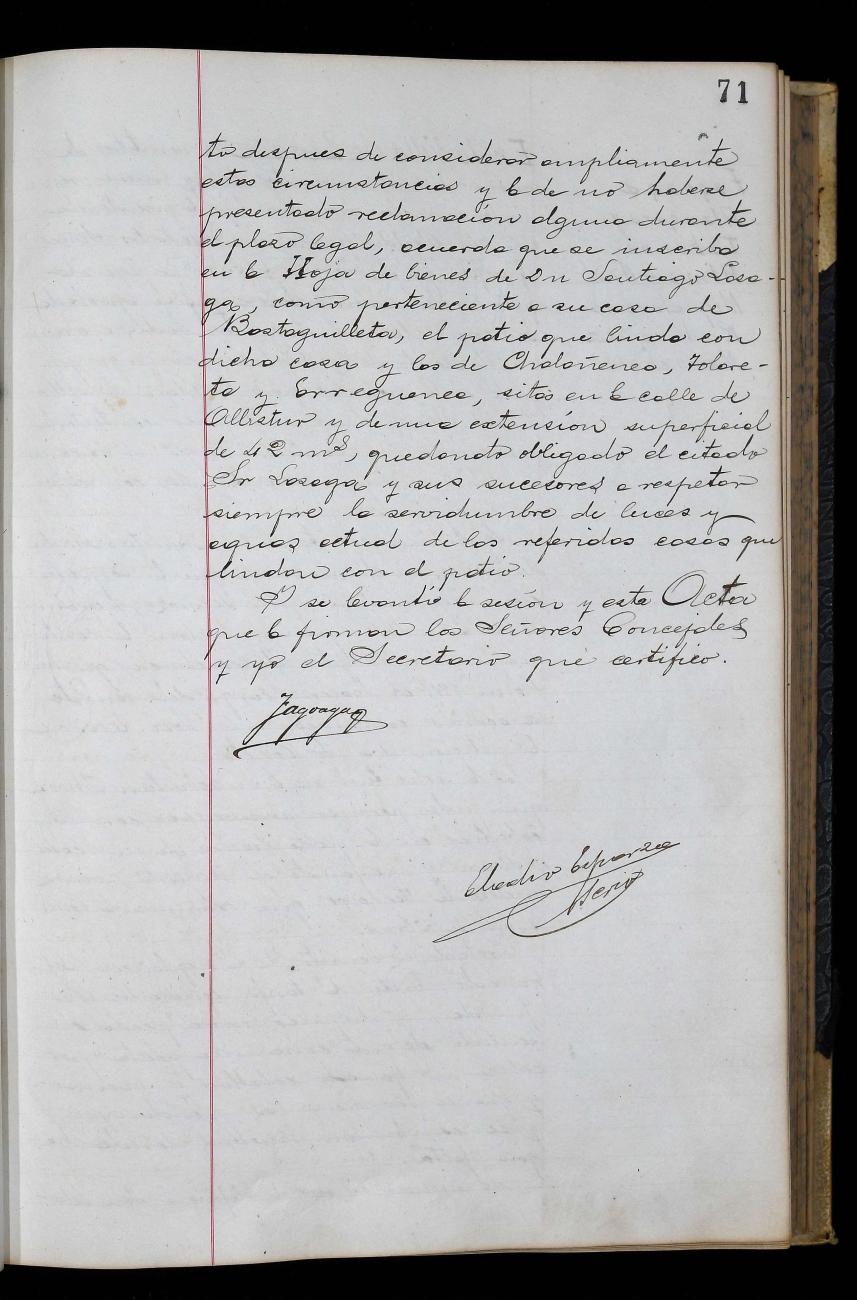 71
to despues de considerar ampliamente
estas circunstancias y la de no haberse
presentado reclamación alguna durante
el plazo legal, acuerda que se inscriba
en la Hoja de bienes de Dn Santiago Losa-
ga, como perteneciente a su casa de
Bastaguilleta, el patio que linda con
dicha casa y las de Chalañenea, Tolare-
ta y Erreguenea, sitas en la calle de
Allistur y de una extensión superficial
de 42 ms, quedando obligado el citado
Sr Losaga y sus sucesores a respetar
siempre la servidumbre de luces y
aguas actual de las referidas casas que
lindan con el patio.
Y se levantó la sesión y esta Acta
que la firman los Señores Concejales
y yo el Secretario que certifico.
Jagoaga
Eladio Esparza
Scrio